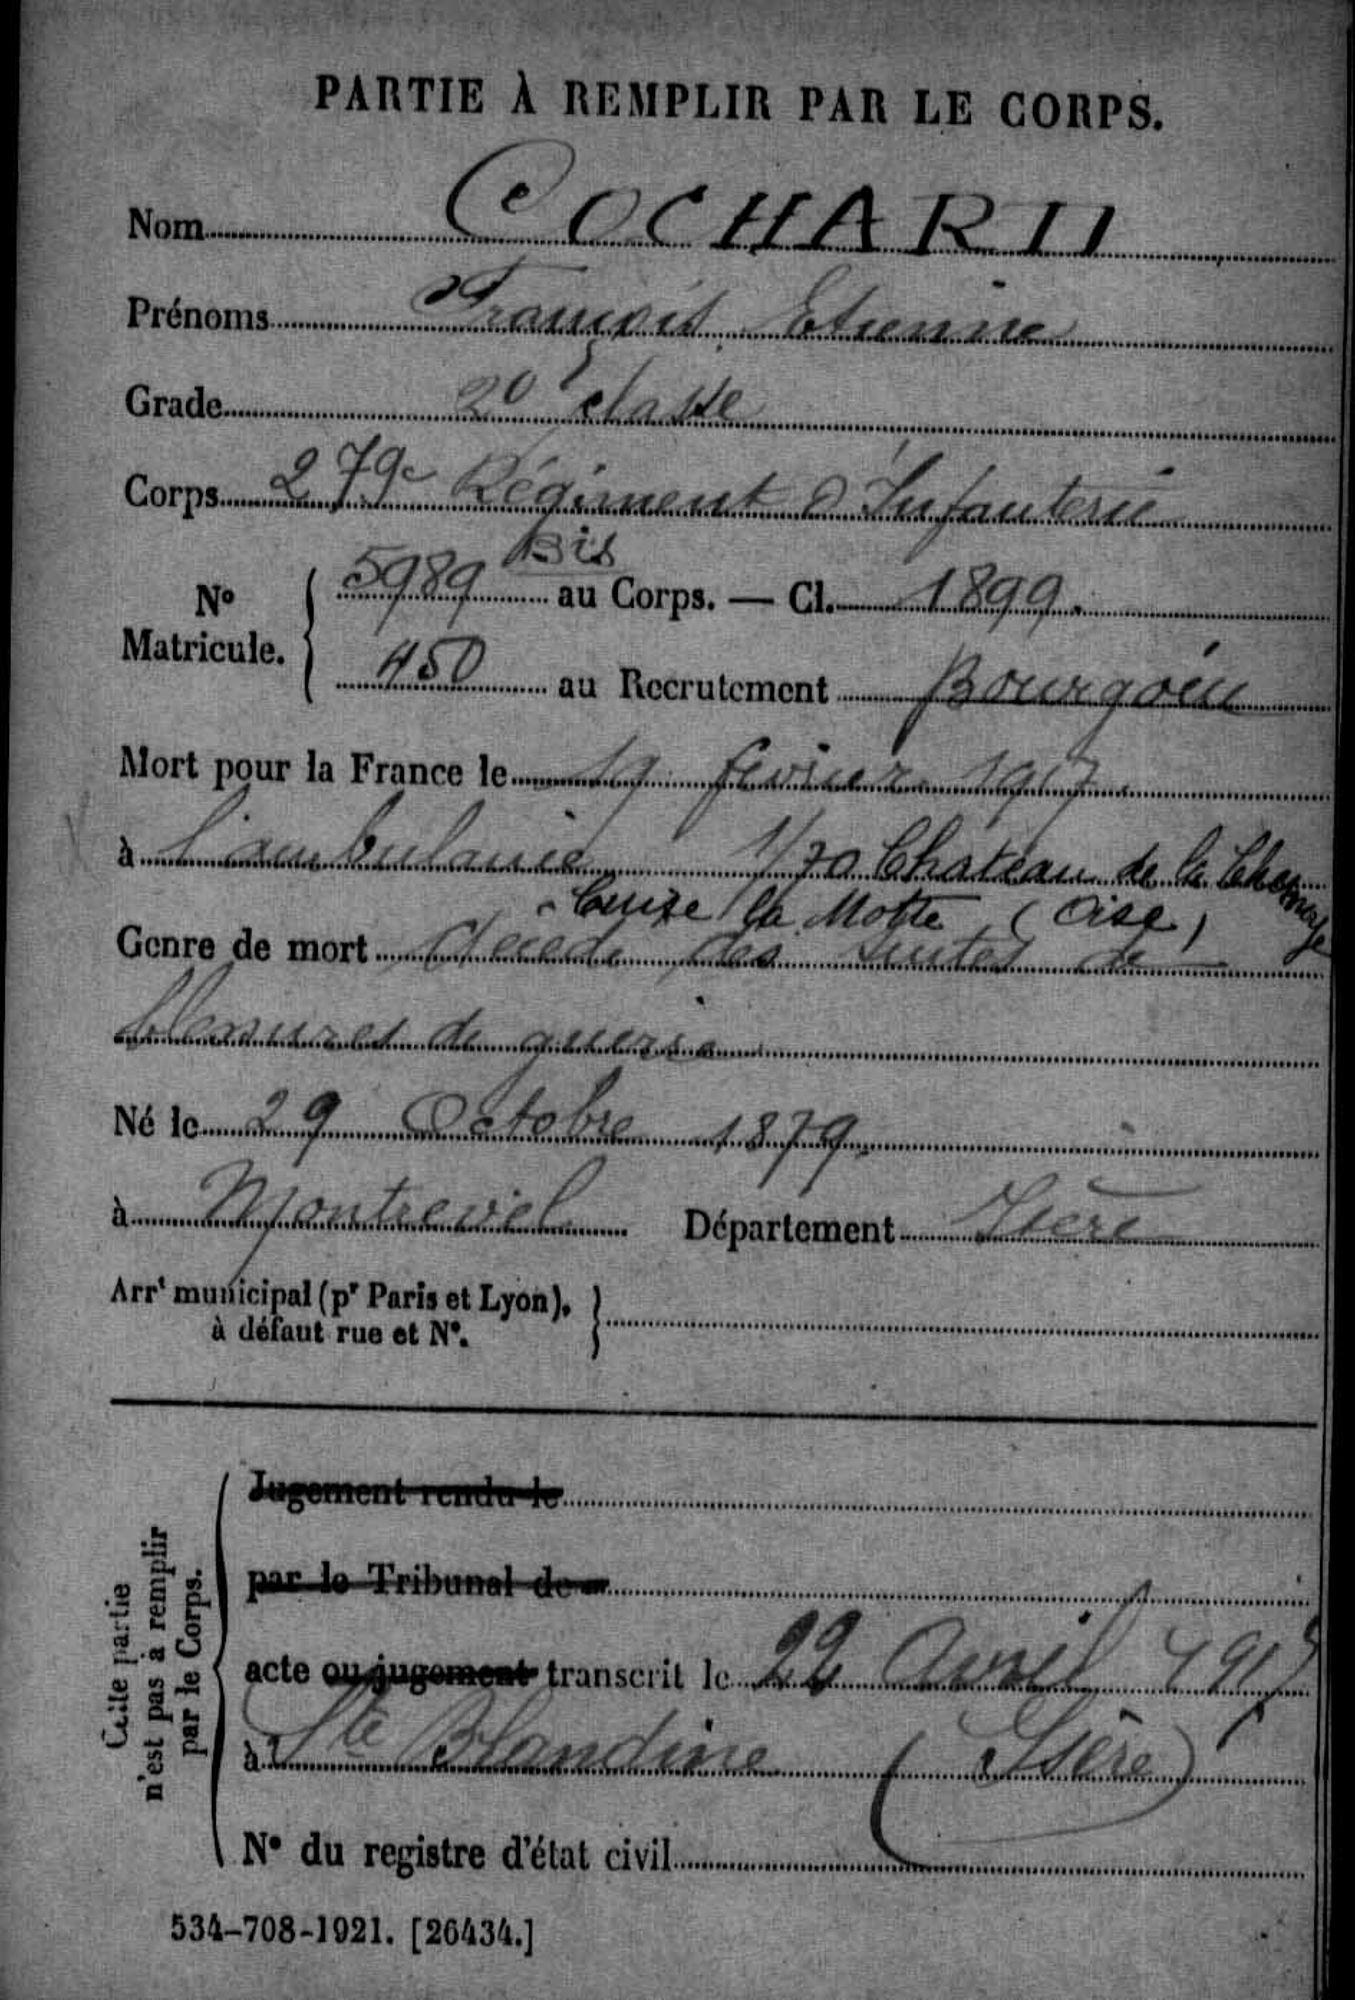 PARTIE À REMPLIR PAR LE CORPS.
Nom COCHARD
Prénoms François Etienne
Grade 2e classe
Corps 279e Régiment d'Infanterie
Bis
5989 au Corps. — Cl. 1899.
No
Matricule.
450 au Recrutement Bourgoin
Mort pour la France le 19 février 1917
à l'ambulance 1/70 Chateau de la Chesnaye
Cuise la Motte (Oise)
Genre de mort décédé des suites de
blessures de guerre
Né le 29 Octobre 1879.
à Montrevel Département Isère
Arrt municipal (pr Paris et Lyon),
à défaut rue et No.
Cette partie
n'est pas à remplir
par le Corps.
Jugement rendu le
par le Tribunal de
acte ou jugement transcrit le 22 Avril 1917
à Ste Blandine (Isère)
No du registre d'état civil
534-708-1921. [26434.]